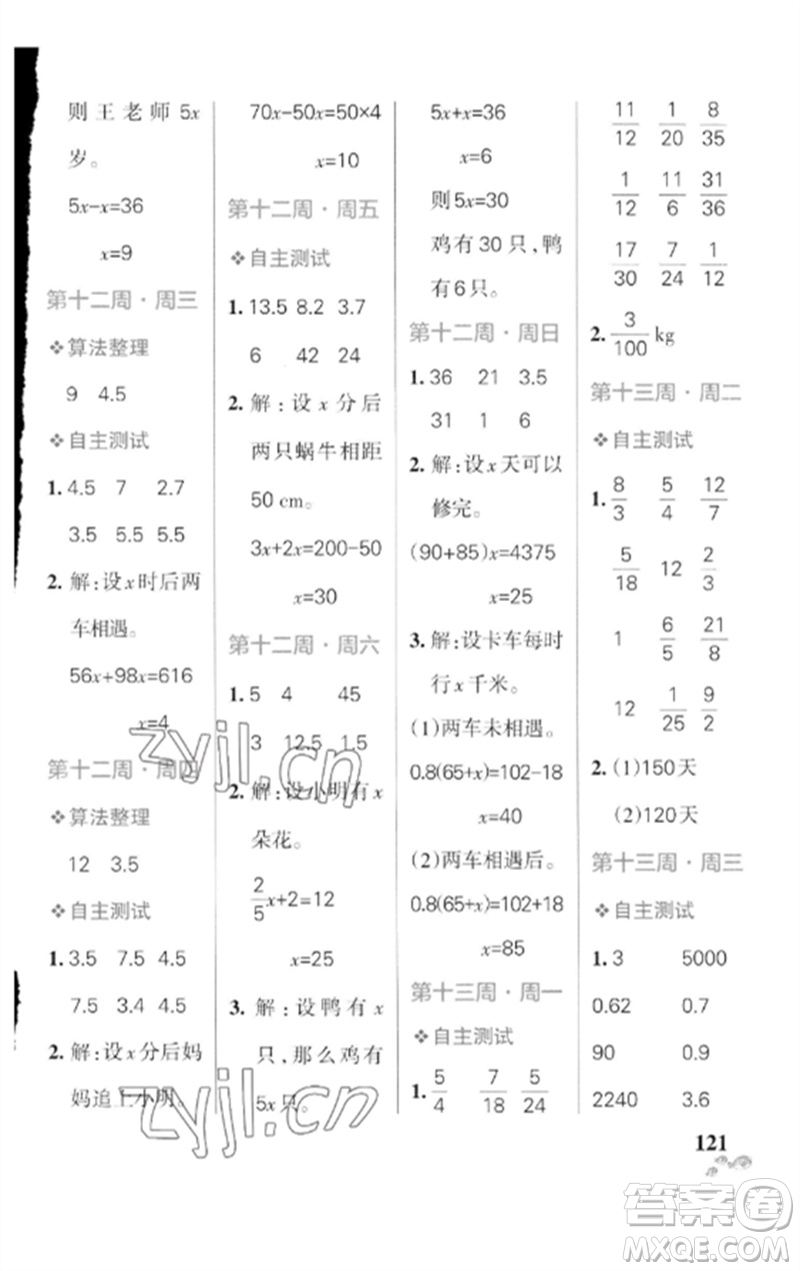 则王老师5x
岁。
5x-x=36
x=9
第十二周·周三
❖算法整理
9 4.5
❖自主测试
1. 4.5 7 2.7
3.5 5.5 5.5
2. 解：设x时后两
车相遇。
56x+98x=616
x=4
第十二周·周四
❖算法整理
12 3.5
❖自主测试
1. 3.5 7.5 4.5
7.5 3.4 4.5
2. 解：设x分后妈
妈追上小明。
70x-50x=50×4
x=10
第十二周·周五
❖自主测试
1. 13.5 8.2 3.7
6 42 24
2. 解：设x分后
两只蜗牛相距
50 cm。
3x+2x=200-50
x=30
第十二周·周六
1. 5 4 45
3 12.5 1.5
2. 解：设小明有x
朵花。
2/5x+2=12
x=25
3. 解：设鸭有x
只，那么鸡有
5x只。
5x+x=36
x=6
则5x=30
鸡有30只，鸭
有6只。
第十二周·周日
1. 36 21 3.5
31 1 6
2. 解：设x天可以
修完。
(90+85)x=4375
x=25
3. 解：设卡车每时
行x千米。
(1)两车未相遇。
0.8(65+x)=102-18
x=40
(2)两车相遇后。
0.8(65+x)=102+18
x=85
第十三周·周一
❖自主测试
1. 5/4 7/18 5/24
11/12 1/20 8/35
1/12 11/6 31/36
17/30 7/24 1/12
2. 3/100 kg
第十三周·周二
❖自主测试
1. 8/3 5/4 12/7
5/18 12 2/3
1 6/5 21/8
12 1/25 9/2
2. (1)150天
(2)120天
第十三周·周三
❖自主测试
1. 3 5000
0.62 0.7
90 0.9
2240 3.6
121
zyjl.cn
zyjl.cn
答案卷
MXQE.COM